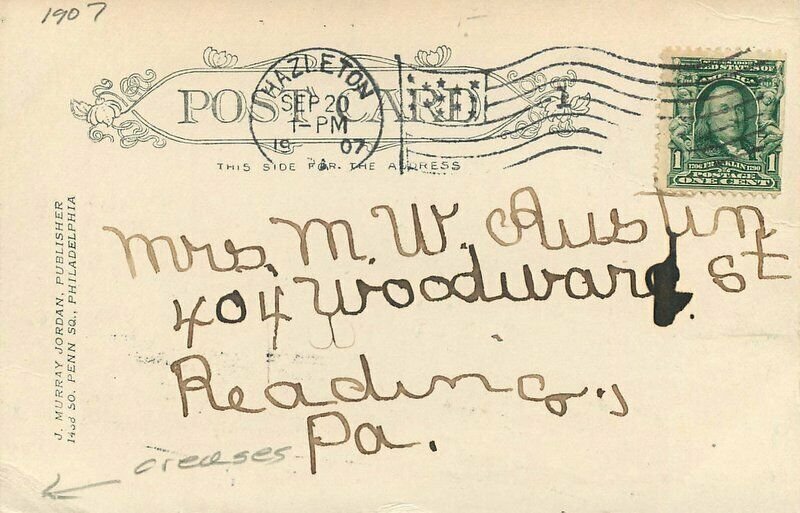 1907
POST CARD
HAZLETON
SEP 20
1-PM
1907
1
THIS SIDE FOR THE ADDRESS
SERIES 1902
UNITED STATES OF
AMERICA
1 1706 FRANKLIN 1790 1
POSTAGE
ONE CENT
J. MURRAY JORDAN, PUBLISHER
SO. PENN SQ., PHILADELPHIA
Mrs. M. W. Austin
404 Woodward. St
Reading,
Pa.
creases